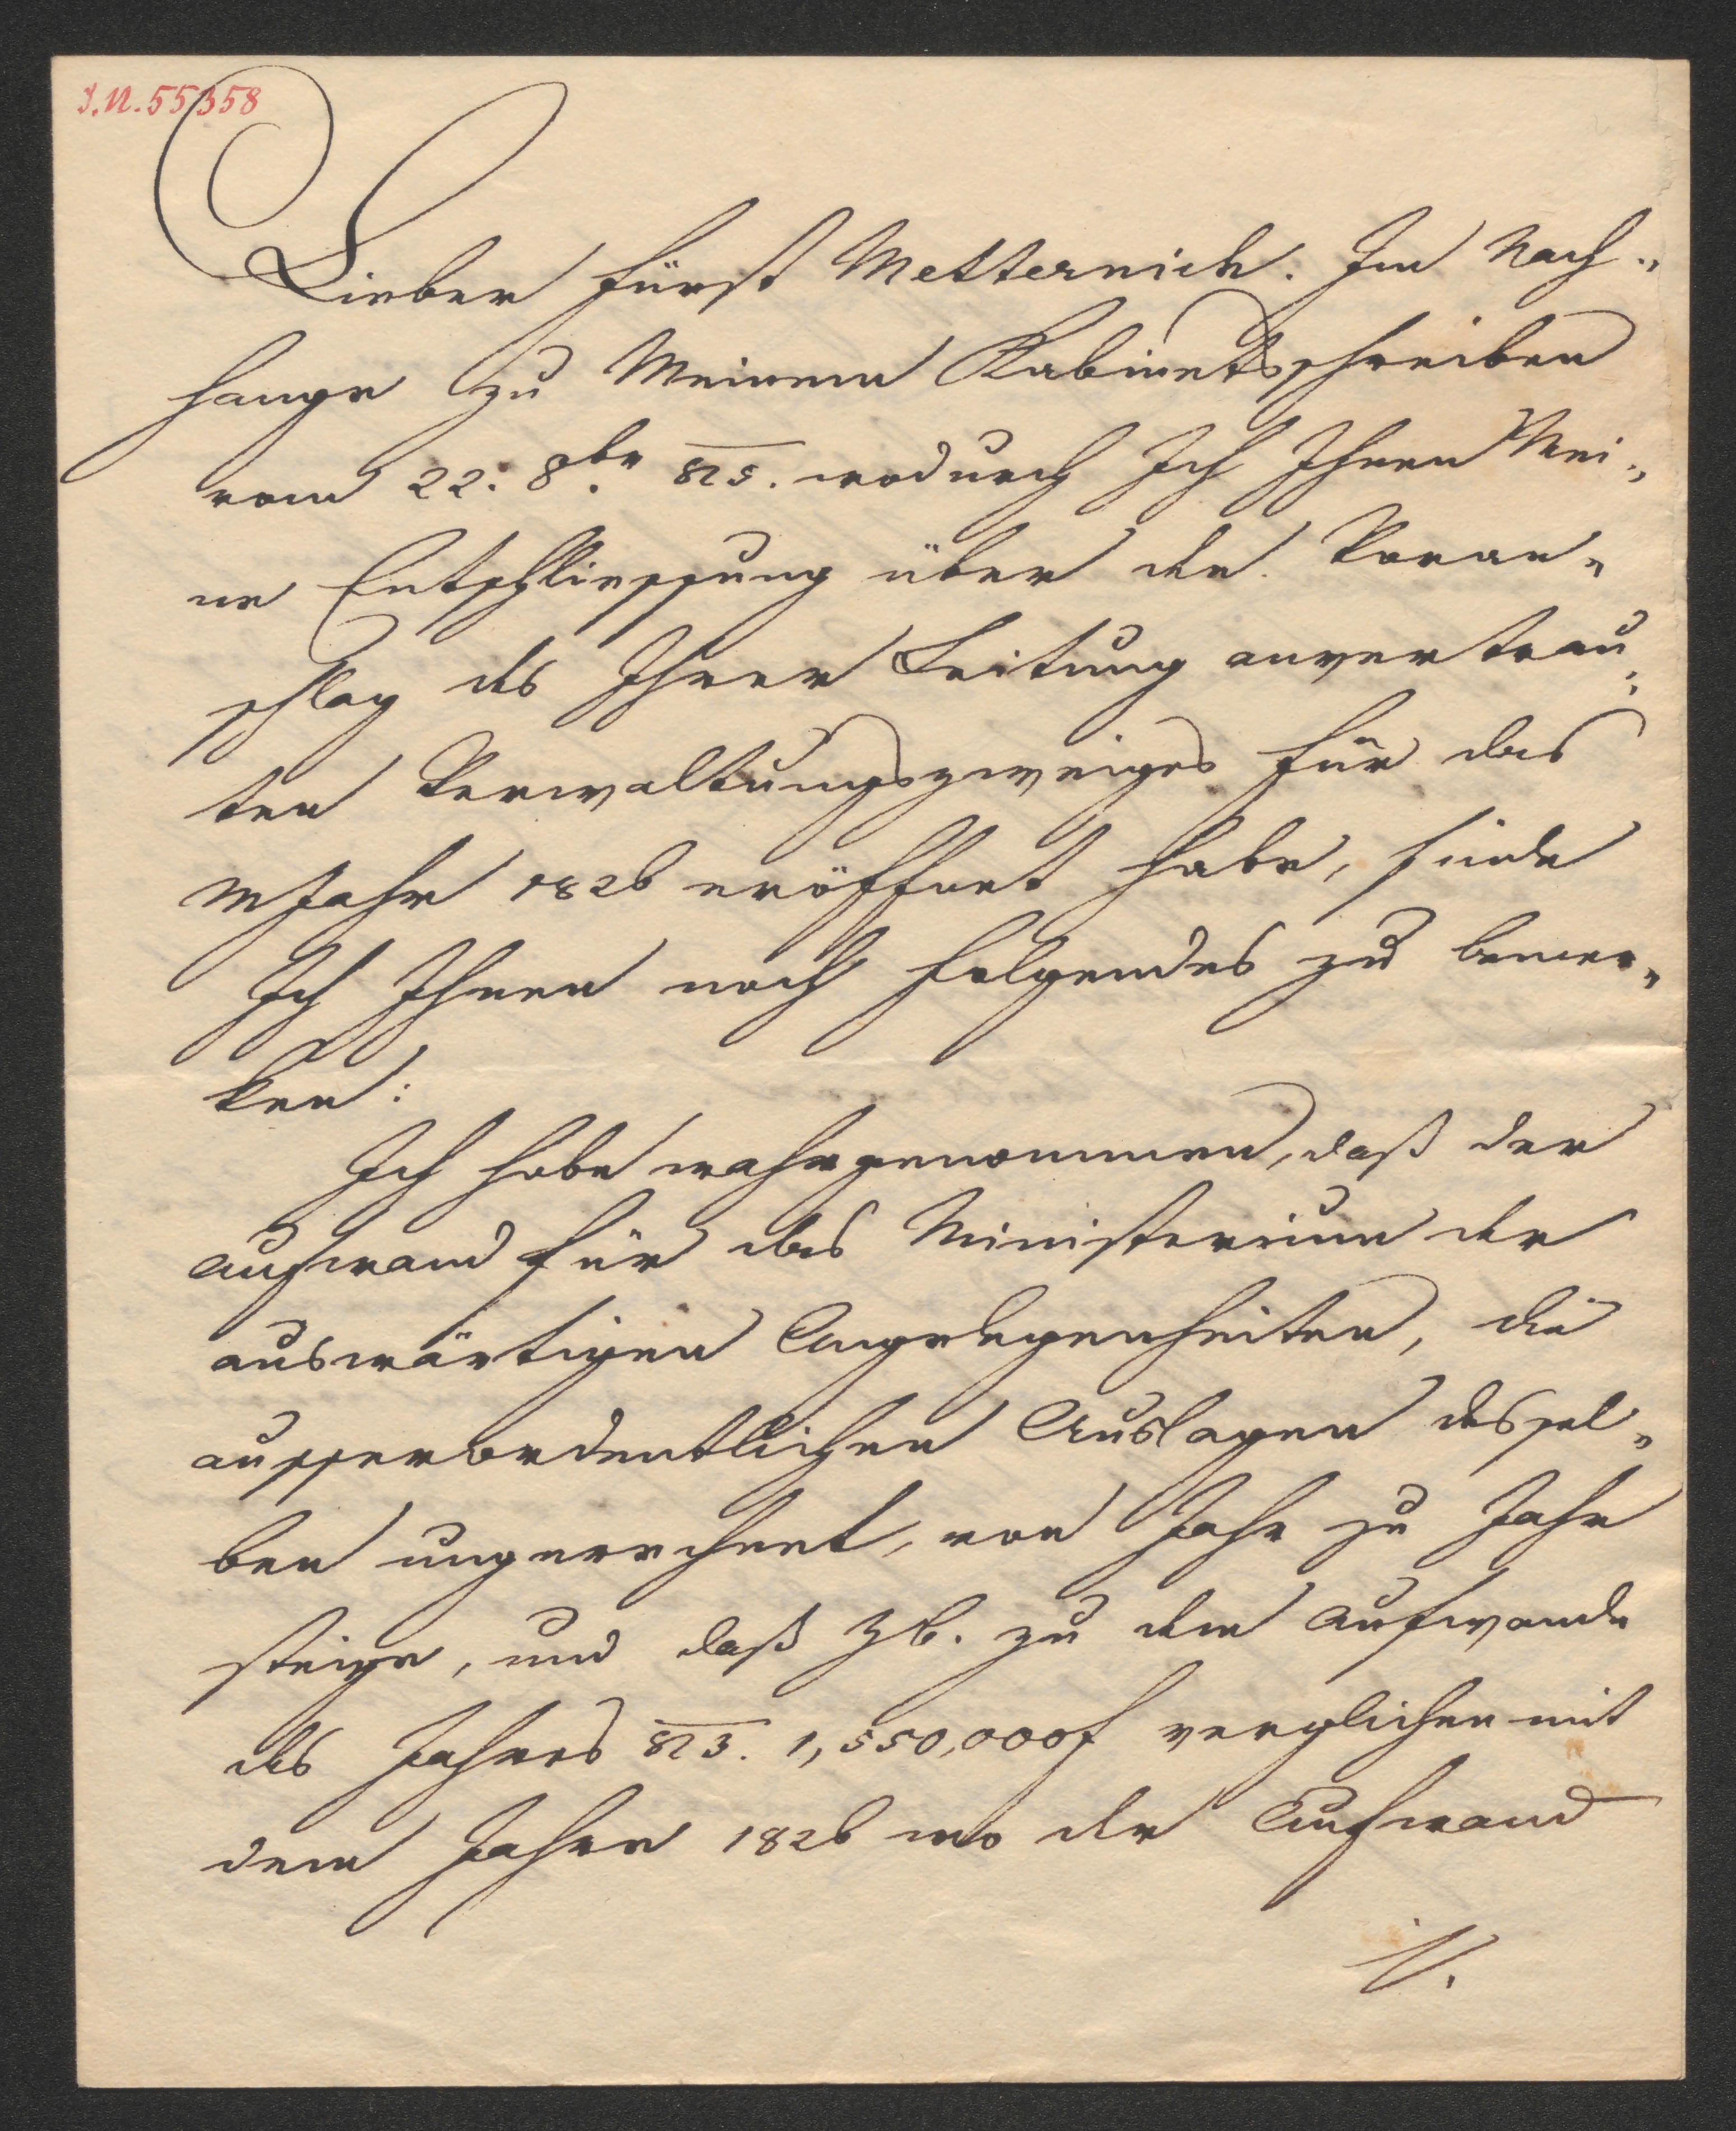 I.N. 55358
Lieber Fürst Metternich. Im Nach„
hange zu Meinem Kabinetsschreiben
vom 22: 8br. 825. wodurch Ich Ihnen Mei„
ne Entschliessung über den Voran„
schlag des Ihrer Leitung anvertrau„
ten Verwaltungszweiges für das
M Jahr 1826 eröffnet habe, finde
Ich Ihnen noch folgendes zu bemer„
ken:
Ich habe wahrgenommen, daß der
Aufwand für das Ministerium der
auswärtigen Angelegenheiten, die
ausserordentlichen Auslagen dessel„
ben ungerechnet, von Jahr zu Jahr
steige, und daß z.B. zu dem Aufwande
des Jahres 823. 1,550,000f verglichen mit
dem Jahre 1826 wo der Aufwand
//.